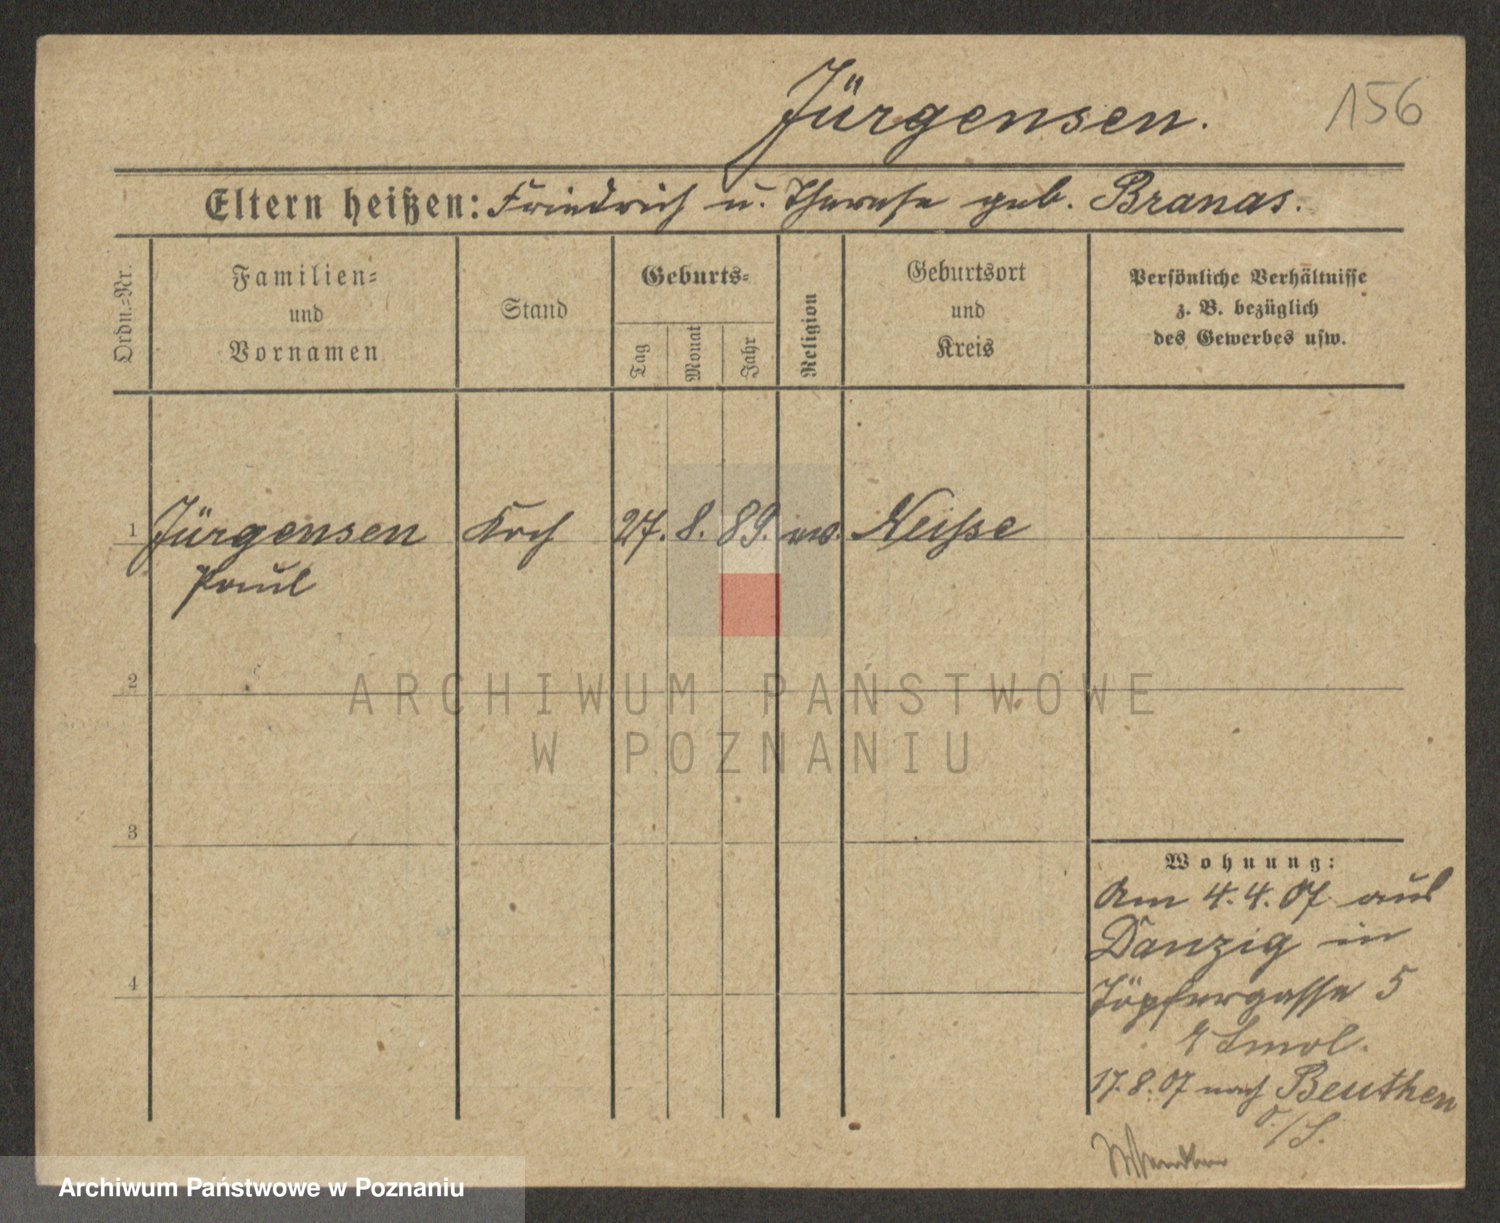 Jürgensen.
156
Eltern heißen: Friedrich u. Therese geb. Branas.
Ordn.-Nr.
Familien-
und
Vornamen
Stand
Geburts-
Tag
Monat
Jahr
Religion
Geburtsort
und
Kreis
Persönliche Verhältnisse
z. B. bezüglich
des Gewerbes usw.
1 Jürgensen Koch 27. 8. 89. ev. Neisse
Paul
2
ARCHIWUM PAŃSTWOWE
W POZNANIU
3
4
Wohnung:
Am 4.4.07 aus
Danzig in
Töpfergasse 5
Smol.
17.8.07 nach Beuthen
O./S.
Archiwum Państwowe w Poznaniu